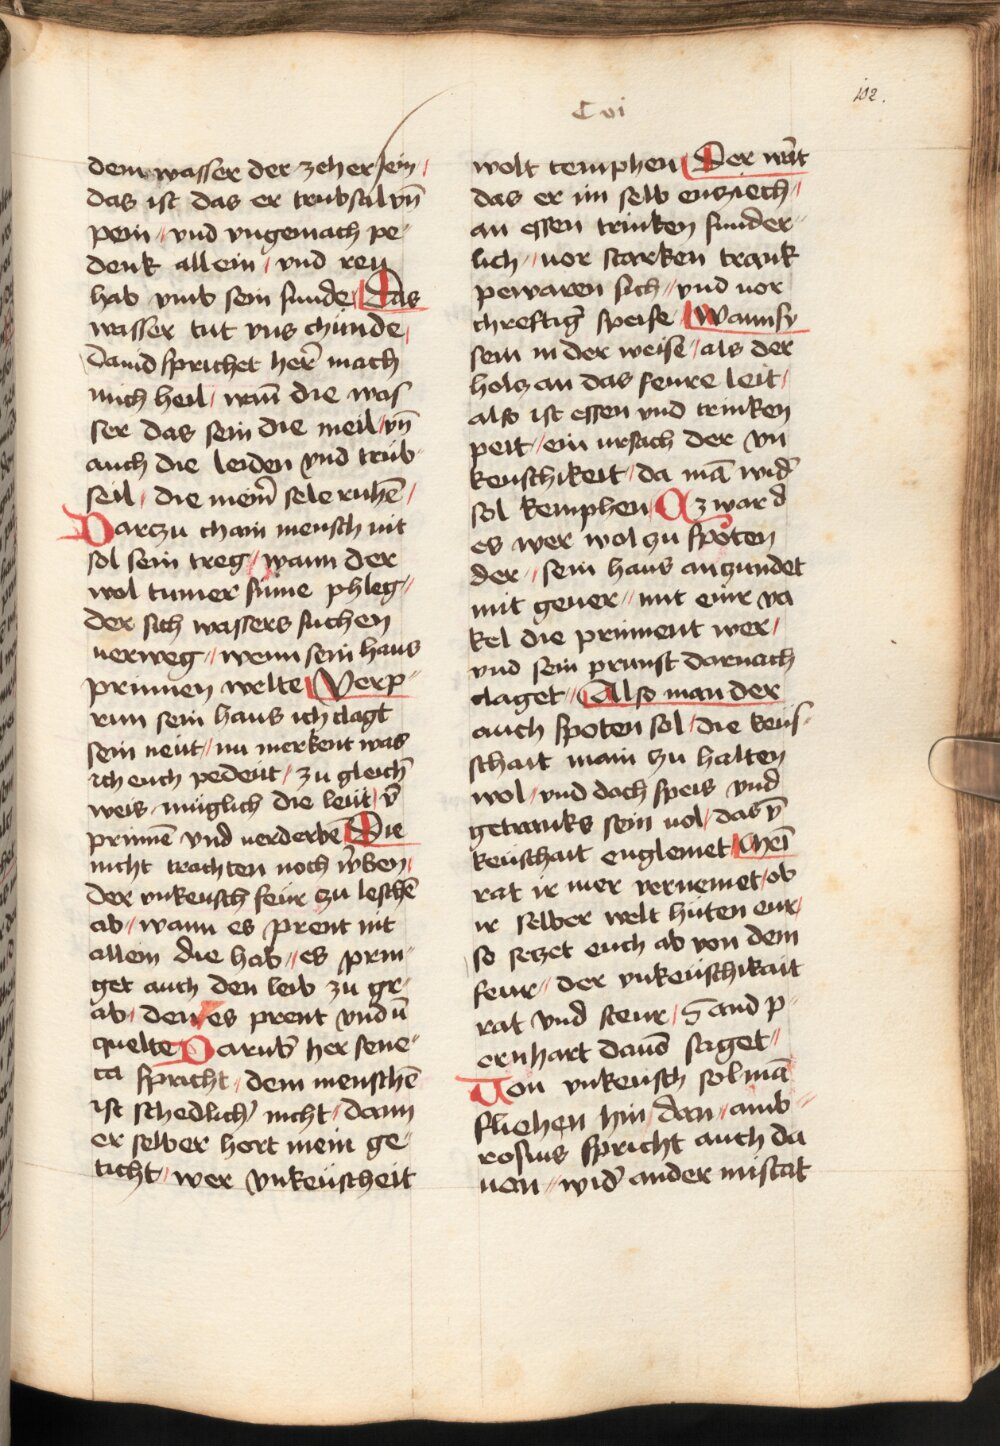 C vi
102.
dem wasser der zeher sein /
das ist das er trubsal vn̄
pein // vnd vngemach pe//
denk allein / vnd reu
hab vmb sein sunde / Das
wasser tut vns chunde /
Dauid sprichet her̄ mach
mich heil / wan̄ die was
ser das sein die meil / vn̄
auch die leiden vnd trüb//
seil / die mein̄ sele ruhē /
Darczu chain mensch nit
sol sein treg / wann der
wol tumer sinne phleg //
der sich wassers suchen
uerweg // wenn sein haus
prinnen welte / Verp//
run sein haus ich clagt
sein neüt // nu merkent was
ich euch pedeüt / zu gleich̄
weis müglich die leüt / v̄
prinnē vnd verderbē / Die
nicht trachten noch w̄ben /
der vnkeusch feür zu leschē
ab / wann es prent nit
allein die hab // es prin//
get auch den leib zu gr//
ab / den es prent vnd ū
quelte Darub̄ her sene//
ca spricht / dem menschē
ist schedlich̄ nicht / dann
er selber hort mein ge//
ticht / wer vnkeüscheit
wolt temphen / Der rāt
das er im selb encziech /
an essen trinken sunder//
lich // uor starken trank
pewaren sich // vnd uor
chreftiḡ speise / Wann sy
sein in der weise / als der
holcz an das feure leit /
also ist essen vnd trinken
peit / ein ursach der vn
keuschikeit / da mā wid̄
sol kemphen / Czwar d̄
es wer wol zu spoten
der // sein haus anzundet
mit geuer // mit einr va
kel die prinnent wer /
vnd sein prunst darnach
claget // Also man der
auch spoten sol / die keus//
schait main zu halten
wol / vnd doch speis vnd
getranks sein uol / das v̄
keüschait englemet / Meī
rat ir mer vernemet / ob
ir selber welt hüten eur /
so seczet euch ab von dem
feur // der vnkeüschikait
rat vnd steur / Sand p//
ernhart dauō saget //
Von vnkeusch sol mā
fliehen hin dan / amb//
rosius spricht auch da
uon // wid̄ ander mistat